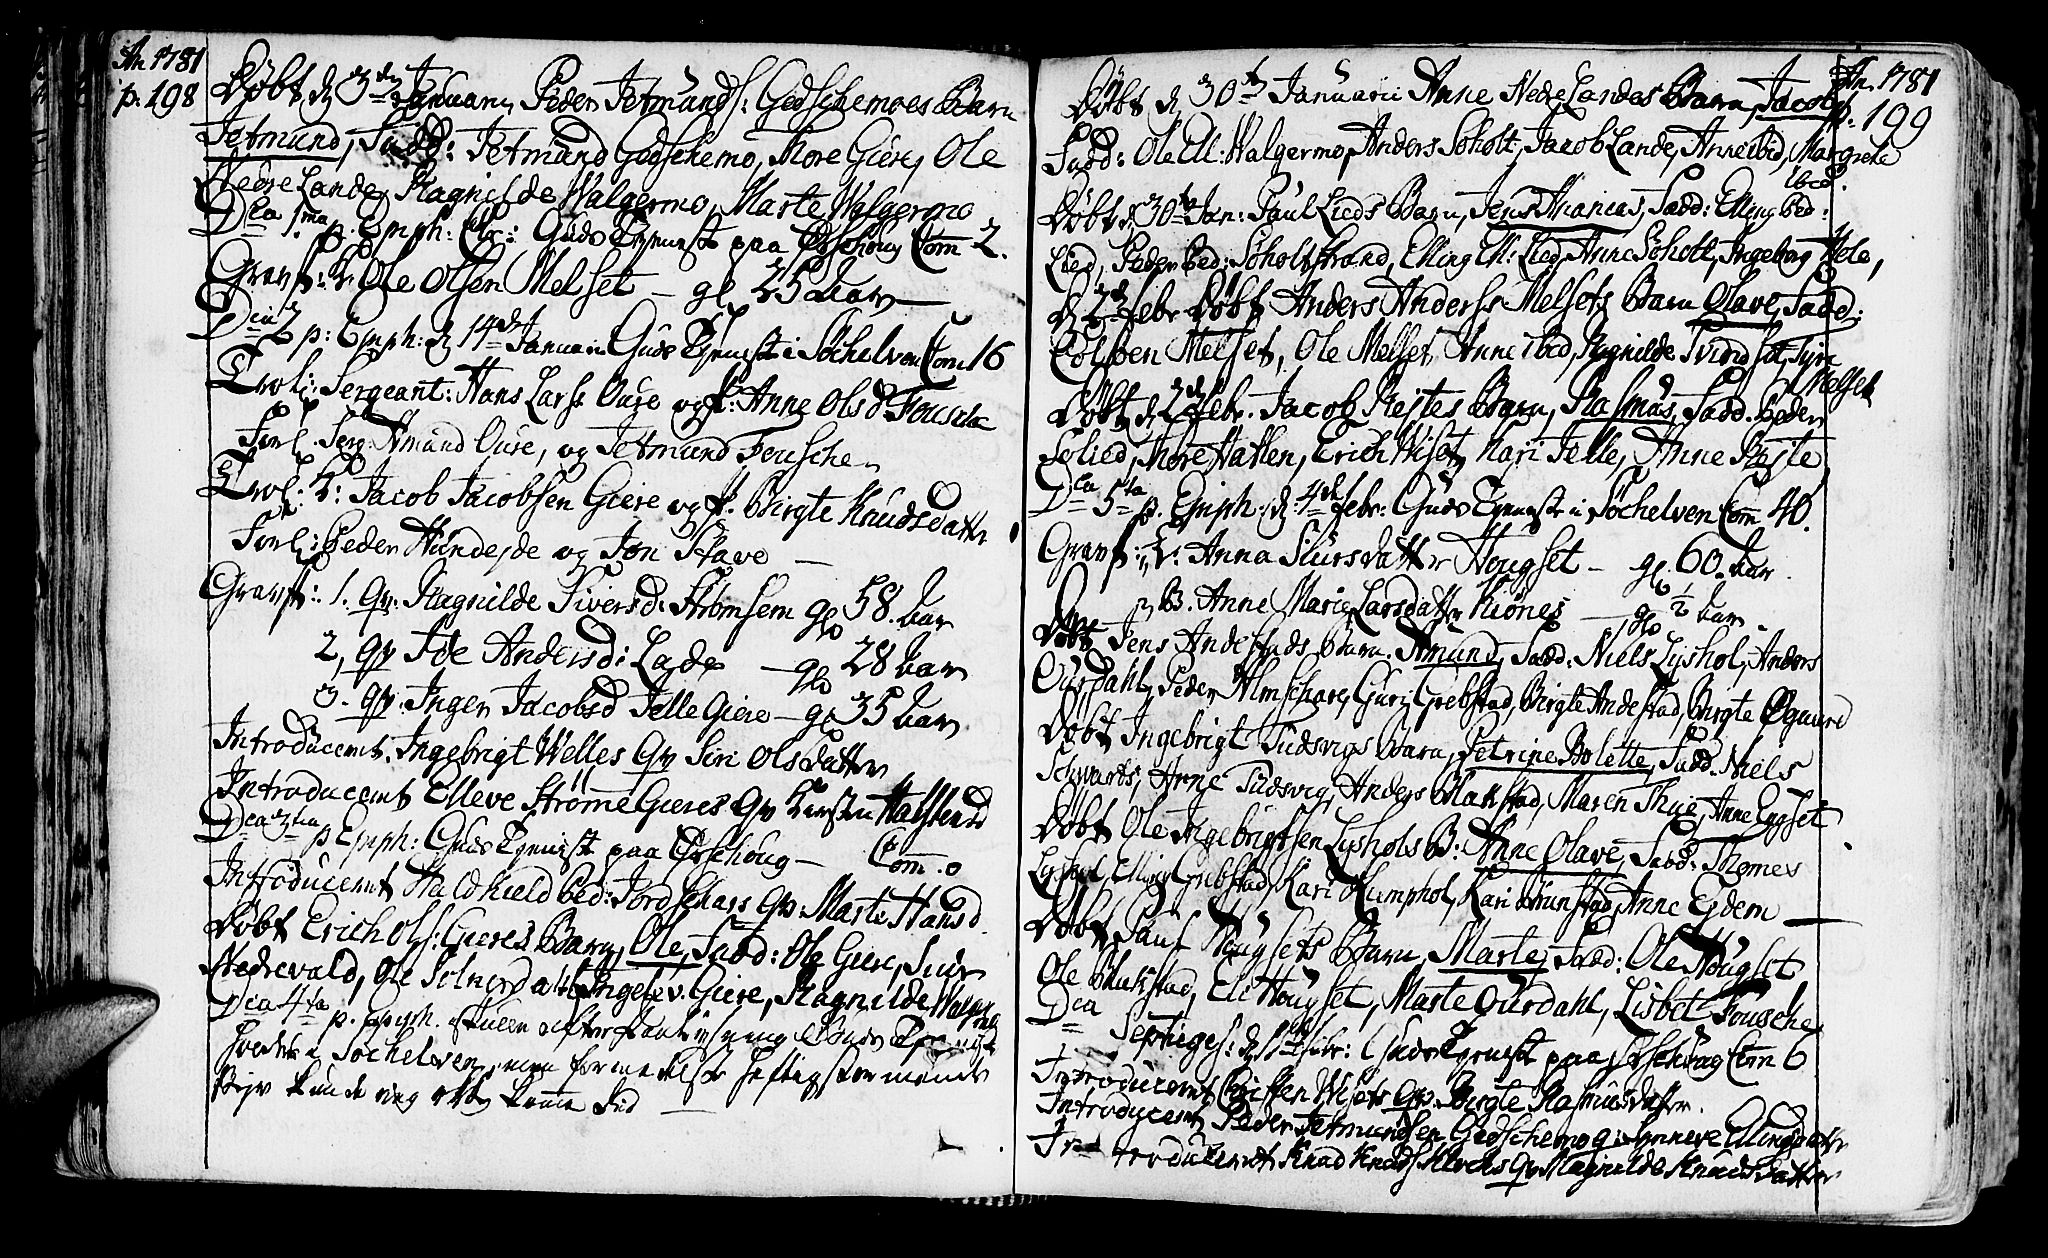 An 1781
p. 198
Døbt d 3die Januarij Peder Jetmunds: Gedschemoes Barn
Jetmund, Fadd: Jetmund Gedschemo, Tore Giere, Ole
Nedre Lande, Ragnilde Walgermo, Marte Walgermo
Dca 1ma p. Epiph: Guds Tieneste paa Com 2.
Gravf: K Ole Olsen Melset – gl 25 Aar –
Dca 2 p: Epiph: d 14de Januarii Guds Tieneste i Søchelven Com 16
Trol: Sergeant: Hans Lars Oure og P: Anne Olsd Fousche
Forl. Serg Amund Oure, og Jetmund Fousche
Trol: K: Jacob Jacobsen Giere og P. Birgte Knudsdatter
Forl: Peder Hundejde og Jon Stave –
Gravf: 1. Qv: Ragnilde Siversd: Strømsem gl 58. Aar
2, Qv Ide Andersd: Lade – gl 28 Aar
3. Qv: Inger Jacobsd Jelle Giere – gl 35 Aar
Introducent. Ingebrigt Welles Qv Siri Olsdatter
Introducent Elleve Strømme Gieres Qv Kirsten
Dca 3tia p Epiph: Guds Tieneste paa – Com. 0
Introducent Haldkield Ped: Qv: Marte Hansd.
Døbt Erich Ols: Gieres Barn, Ole, Fadd: Ole Giere, Siur
Nedrevald, Ole Giere, Ragnilde
Dca 4ta p. Epiph. skulle efter Guds Tieneste
i Søchelven, men formedelst heftigste
kunde ieg ikke komme did –
An 1781
p. 199
Døbt d 30te Januarii Anne Nedre Landes Barn, Jacob,
Fadd: Ole Ell: Walgermo, Anders Søholt, Jacob Lande, Anne ibid, Margrete
ibid.
Døbt d 30te Jan: Paul Lieds Barn, Jens Ananias, Fadd: Elling Ped:
Lied, Peder Ped: Søholtstrand, Elling Ell: Lied, Anne Søholt, Ingeborg Hole,
D 2den Febr Døbt Anders Anders: Melsets Barn Olave, Fadd:
Colben Melset, Ole Melset, Anne ibid, Ragnilde
Melset
Døbt d 2den Febr. Jacob Rejtes Barn, Rasmus, Fadd. Peder
Solied, Tore Hatlen, Erich Wiset, Kari Jelle, Anne Rejte
Dca 5ta p. Epiph: d 4de Febr: Guds Tieneste i Søchelven Com 40.
Gravf: Anna Siursdatter Hougset – gl. 60. Aar.
B. Anne Marie Larsdatter Kiønes – gl ½ Aar.
Døbt Jens Andestads Barn. Amund, Fadd: Niels Lyshol, Anders
Ourdahl, Peder Almschare, Guri Grebstad, Birgte Andestad, Birgte Øgaard
Døbt Ingebrigt Tudsvigs Barn, Petrine Bolette, Fadd. Niels
Schwarts, Anne Tudsvig, Anders Blakstad, Maren Thue, Anne Eygset
Døbt Ole Ingebrigtsen Lyshols B: Anne Olave, Fadd: Thomes
Lyshol, Elling Grebstad, Kari Klumphol, Kari Brunstad, Anne Ejdem
Døbt Paul Hougsets Barn, Marte, Fadd: Ole Hougset
Ole Blakstad, Eli Hougset, Marte Ourdahl, Lisbet Fousche
Dca Septuages: d 11te Febr: Guds Tieneste paa Com 6
Introducent Wisets Qv. Birgte Rasmusdatter.
Introducent Peder Jetmundsen Gedschemo q: Synneve Ellingsdatter
Introducent Knud Knuds Qv Magnilde Knudsdatter